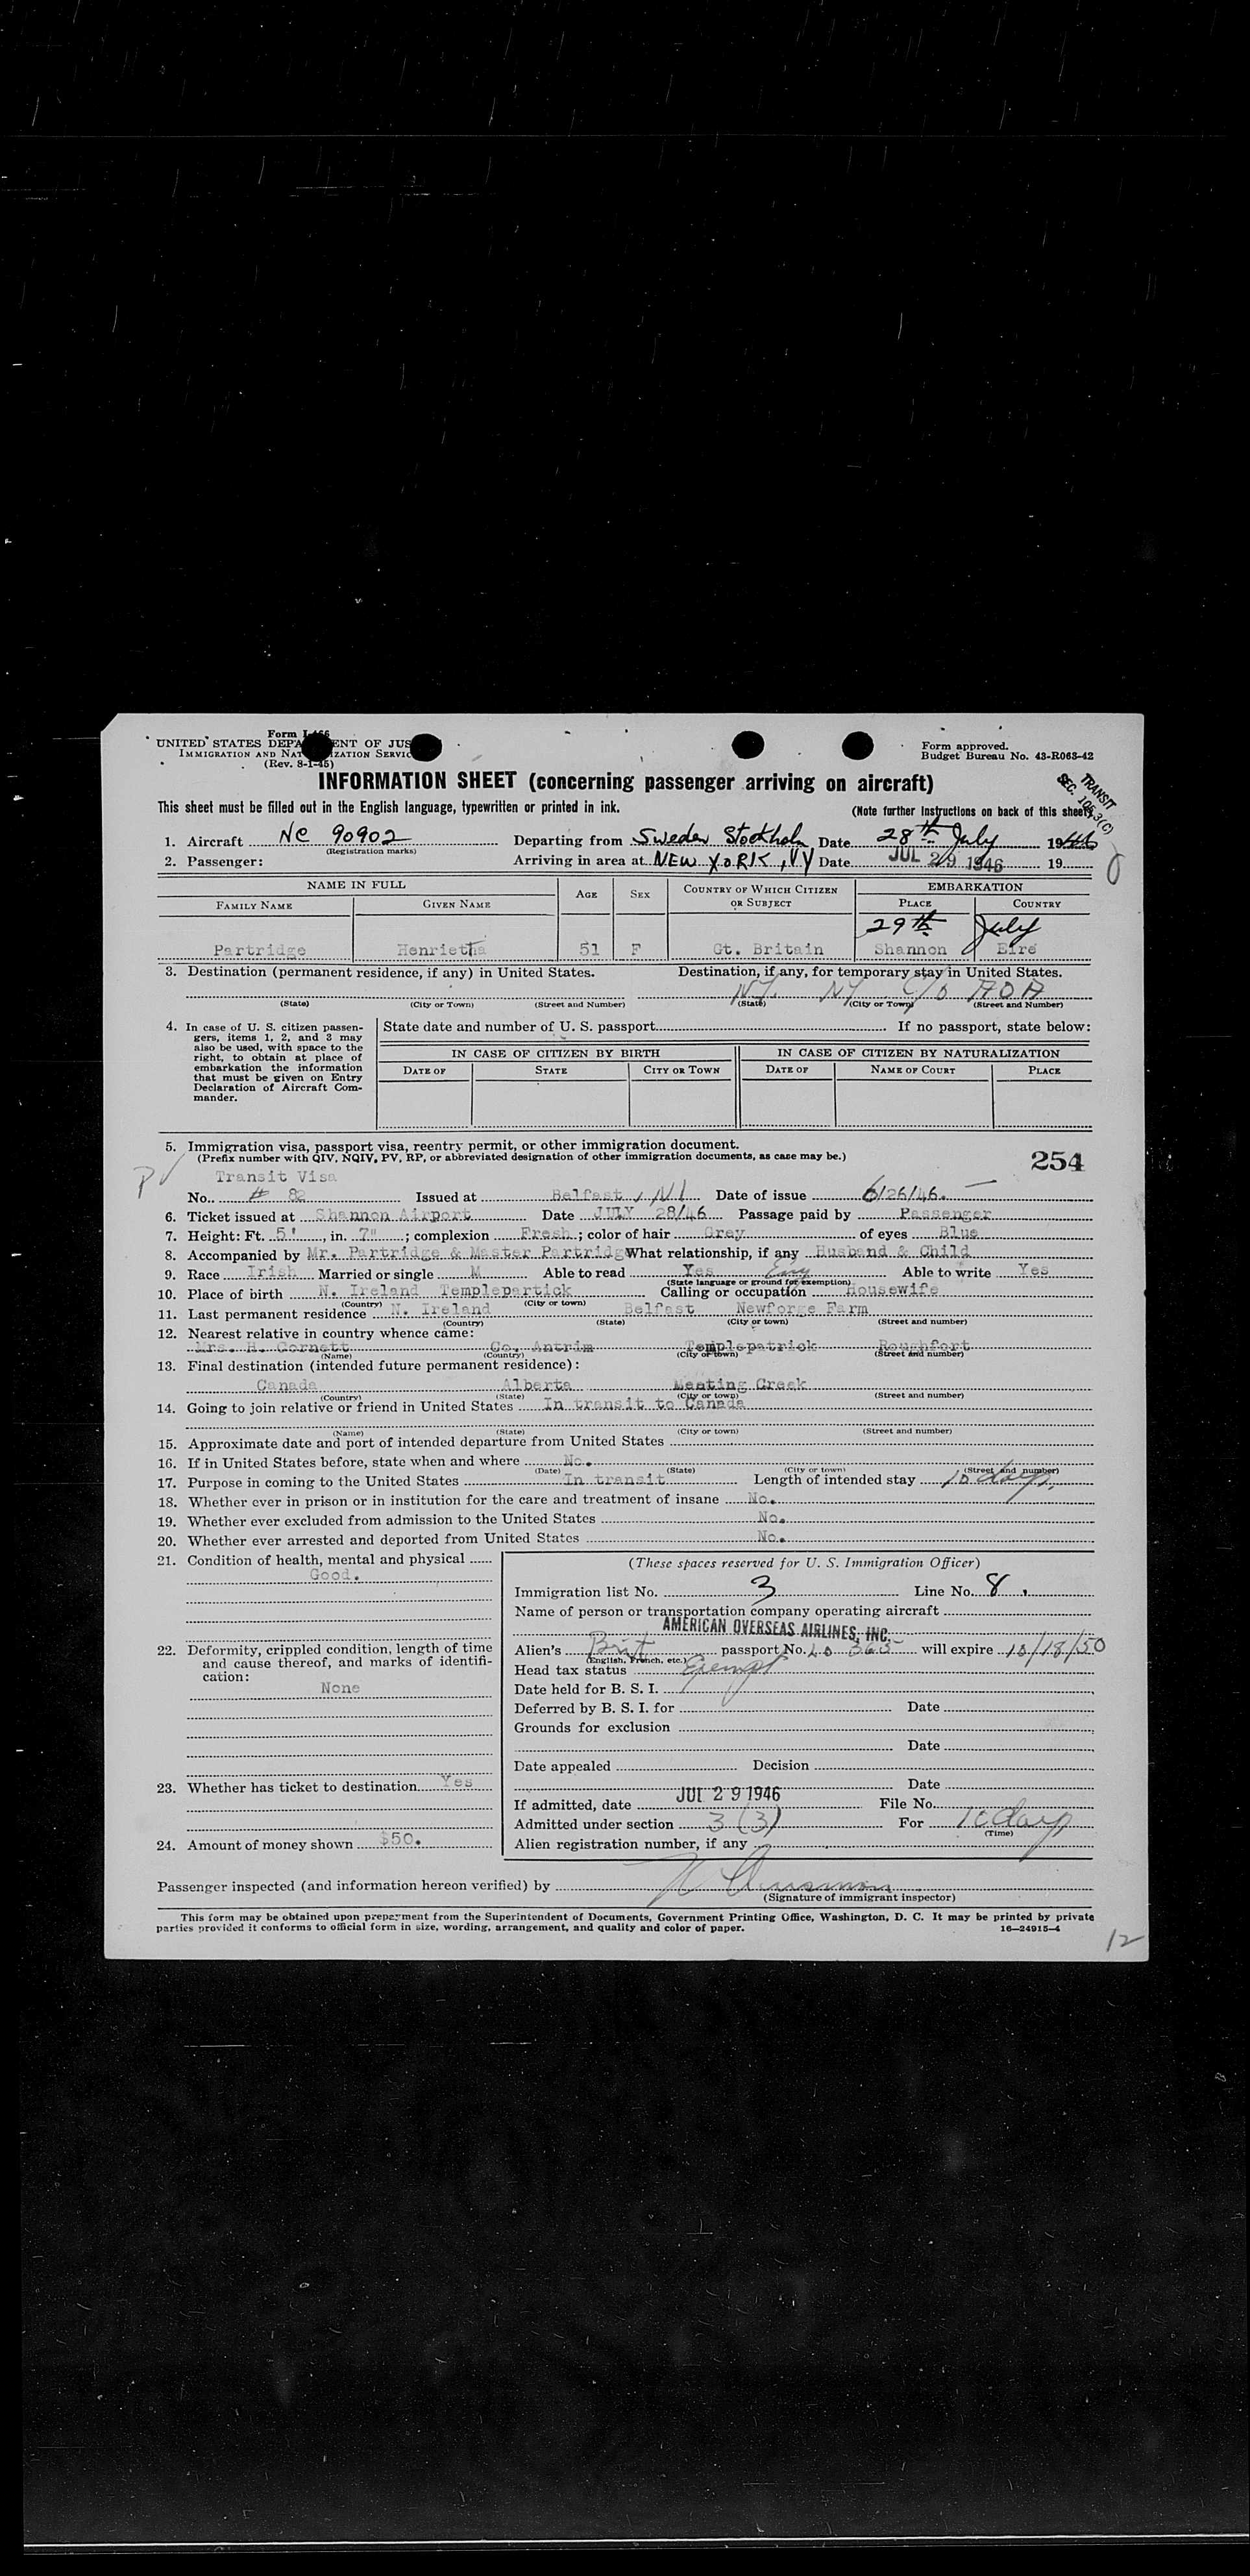 Form I-466
UNITED STATES DEPARTMENT OF JUSTICE
IMMIGRATION AND NATURALIZATION SERVICE
(Rev. 8-1-45)
Form approved.
Budget Bureau No. 43-R063-42
INFORMATION SHEET (concerning passenger arriving on aircraft)
TRANSIT
SEC. 105.3(C)
This sheet must be filled out in the English language, typewritten or printed in ink.
(Note further instructions on back of this sheet)
1. Aircraft NC 90902 Departing from Sweden Stockholm Date 28th July 1946
(Registration marks)
2. Passenger: Arriving in area at NEW YORK, NY Date JUL 29 1946 19
NAME IN FULL AGE SEX COUNTRY OF WHICH CITIZEN OR SUBJECT EMBARKATION
FAMILY NAME GIVEN NAME PLACE COUNTRY
29th July
Partridge Henrietta 51 F Gt. Britain Shannon Eire
3. Destination (permanent residence, if any) in United States. Destination, if any, for temporary stay in United States.
NY. NY C/O AOA
(State) (City or Town) (Street and Number) (State) (City or Town) (Street and Number)
4. In case of U. S. citizen passengers, items 1, 2, and 3 may also be used, with space to the right, to obtain at place of embarkation the information that must be given on Entry Declaration of Aircraft Commander.
State date and number of U. S. passport If no passport, state below:
IN CASE OF CITIZEN BY BIRTH IN CASE OF CITIZEN BY NATURALIZATION
DATE OF STATE CITY OR TOWN DATE OF NAME OF COURT PLACE
5. Immigration visa, passport visa, reentry permit, or other immigration document.
(Prefix number with QIV, NQIV, PV, RP, or abbreviated designation of other immigration documents, as case may be.)
254
PV Transit Visa
No. # 82 Issued at Belfast, NI Date of issue 6/26/46.
6. Ticket issued at Shannon Airport Date JULY 28/46 Passage paid by Passenger
7. Height: Ft. 5' , in. 7" ; complexion Fresh ; color of hair Grey of eyes Blue
8. Accompanied by Mr. Partridge & Master Partridge What relationship, if any Husband & Child
9. Race Irish Married or single M Able to read Yes Eng Able to write Yes
(State language or ground for exemption)
10. Place of birth N. Ireland Templepartick Calling or occupation Housewife
(Country) (City or town)
11. Last permanent residence N. Ireland Belfast Newforge Farm
(Country) (State) (City or town) (Street and number)
12. Nearest relative in country whence came:
Mrs. H. Cornett Co. Antrim Templepatrick Roughfort
(Name) (Country) (City or town) (Street and number)
13. Final destination (intended future permanent residence):
Canada Alberta Meeting Creek
(Country) (State) (City or town) (Street and number)
14. Going to join relative or friend in United States In transit to Canada
(Name) (State) (City or town) (Street and number)
15. Approximate date and port of intended departure from United States
16. If in United States before, state when and where No.
(Date) (State) (City or town) (Street and number)
17. Purpose in coming to the United States In transit Length of intended stay 10 days.
18. Whether ever in prison or in institution for the care and treatment of insane No.
19. Whether ever excluded from admission to the United States No.
20. Whether ever arrested and deported from United States No.
21. Condition of health, mental and physical
Good.
22. Deformity, crippled condition, length of time and cause thereof, and marks of identification:
None
23. Whether has ticket to destination Yes
24. Amount of money shown $50.
(These spaces reserved for U. S. Immigration Officer)
Immigration list No. 3 Line No. 8
Name of person or transportation company operating aircraft
AMERICAN OVERSEAS AIRLINES, INC.
Alien's Brit passport No. LO 365 will expire 10/18/50
(English, French, etc.)
Head tax status Exempt
Date held for B. S. I.
Deferred by B. S. I. for Date
Grounds for exclusion
Date
Date appealed Decision
Date
If admitted, date JUL 29 1946 File No.
Admitted under section 3 (3) For 10 days
(Time)
Alien registration number, if any
Passenger inspected (and information hereon verified) by
(Signature of immigrant inspector)
This form may be obtained upon prepayment from the Superintendent of Documents, Government Printing Office, Washington, D. C. It may be printed by private
parties provided it conforms to official form in size, wording, arrangement, and quality and color of paper.
16—24915-4
12